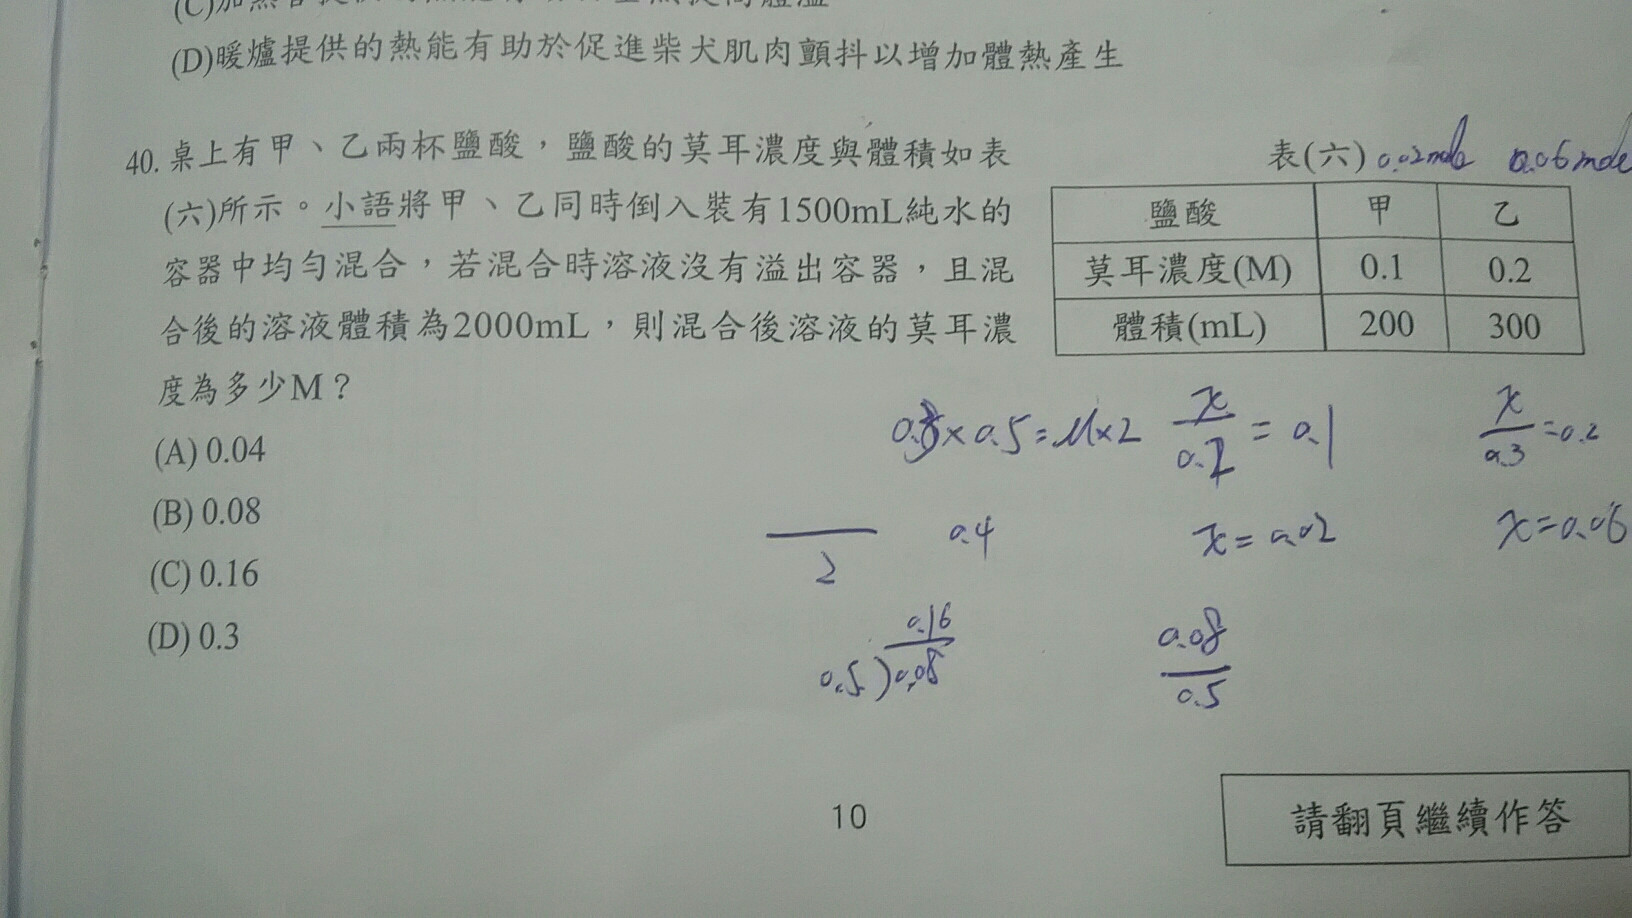 (C)加熱
(D)暖爐提供的熱能有助於促進柴犬肌肉顫抖以增加體熱產生
40. 桌上有甲、乙兩杯鹽酸，鹽酸的莫耳濃度與體積如表
(六)所示。小語將甲、乙同時倒入裝有1500mL純水的
容器中均勻混合，若混合時溶液沒有溢出容器，且混
合後的溶液體積為2000mL，則混合後溶液的莫耳濃
度為多少M？
(A) 0.04
(B) 0.08
(C) 0.16
(D) 0.3
表(六) 0.02mole 0.06mole
鹽酸 甲 乙
莫耳濃度(M) 0.1 0.2
體積(mL) 200 300
×0.5=M×2
x/0.2 = 0.1
x/0.3 =0.2
2
0.4
x=0.02
x=0.06
0.16
0.5)0.08
0.08/0.5
10
請翻頁繼續作答